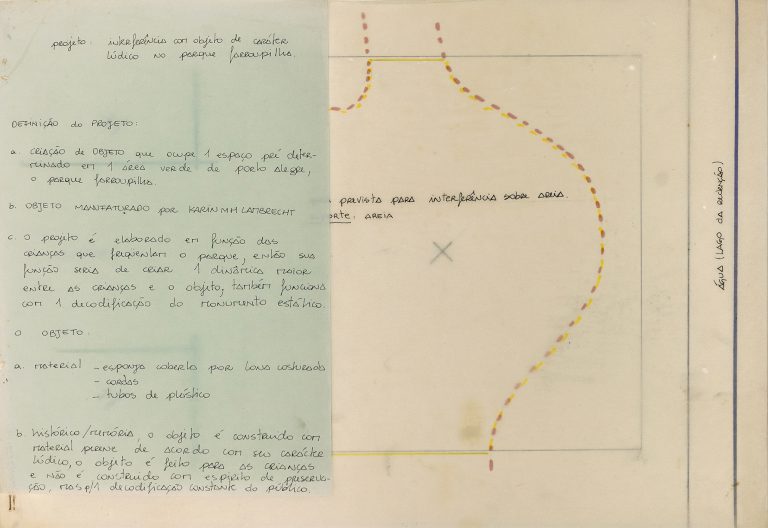 projeto: interferência com objeto de caráter
lúdico no parque farroupilha.
DEFINIÇÃO do PROJETO:
a. CRIAÇÃO de OBJETO que ocupe 1 espaço pré deter-
minado em 1 área verde de porto alegre,
o parque farroupilha.
b. OBJETO MANUFATURADO por KARIN MH LAMBRECHT
c. O projeto é elaborado em função das
crianças que frequentam o parque, então sua
função seria de criar 1 dinâmica maior
entre as crianças e o objeto, também funciona
com 1 decodificação do monumento estático.
O OBJETO.
a. material - esponja coberta por lona costurada
- cordas
- tubos de plástico
b. histórico/memória, o objeto é construido com
material perene de acordo com seu caráter
lúdico, o objeto é feito para as crianças
e não é construido com espírito de preserva-
ção, mas p/1 decodificação constante do público.
prevista para interferência sobre areia.
orte: AREIA
ÁGUA (LAGO DA REDENÇÃO)